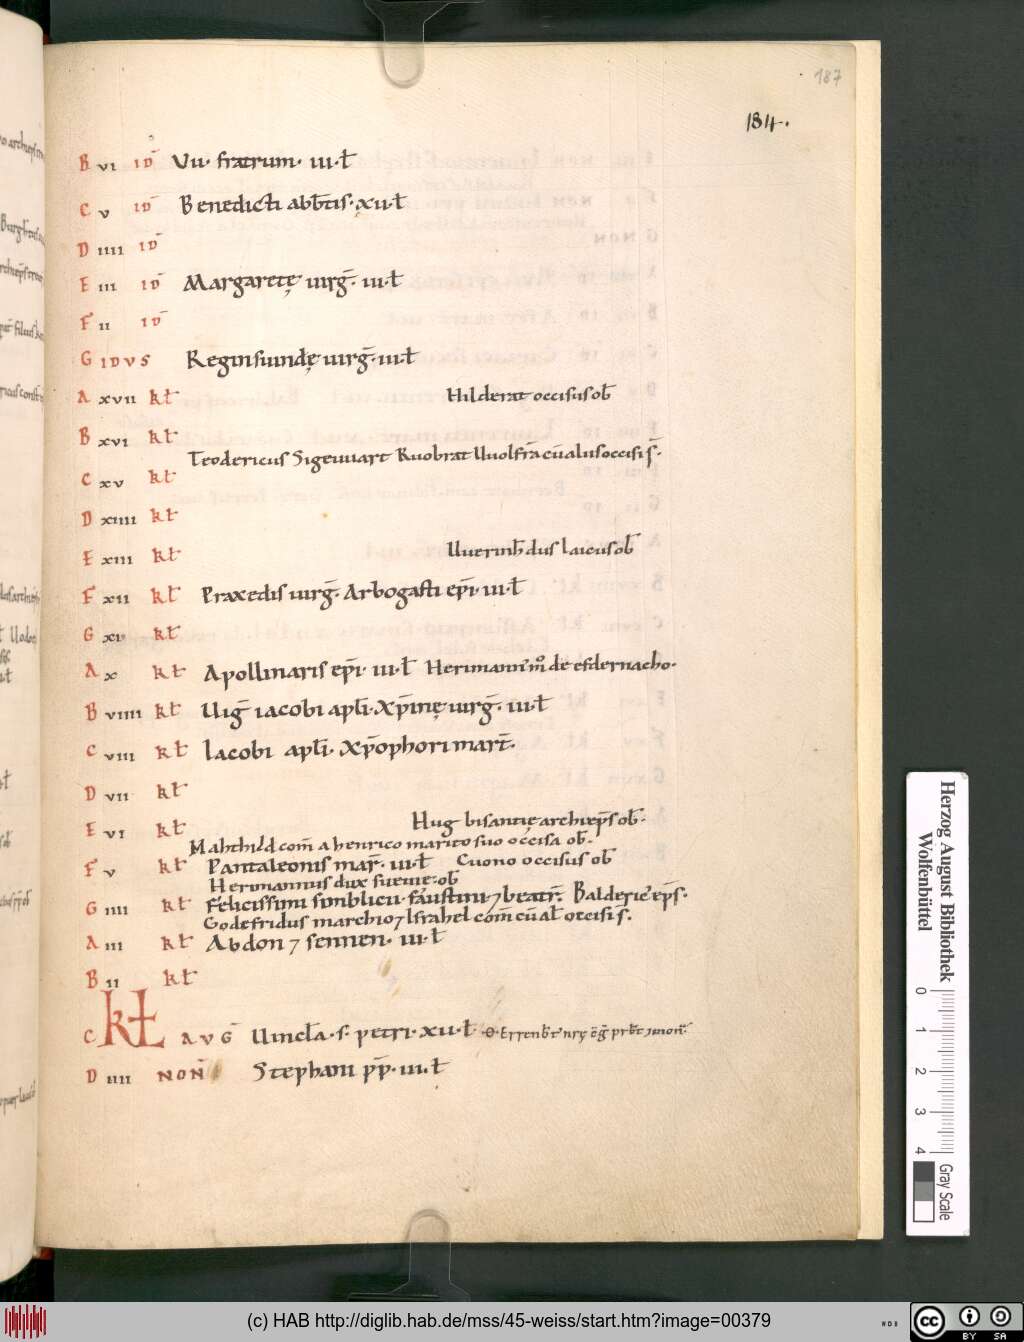 187
184.
B vi id̄ Vii· fratrum· iii·lt̄
C v id̄ Benedicti abb̄tis· xii·lt̄
D iiii id̄
E iii id̄ Margaretę uirḡ· iii·lt̄
F ii id̄
G idvs Reginsuindę uirḡ· iii·lt̄
A xvii kł Hilderat occisus ob̄
B xvi kł
Teodericus Sigeuuart Ruobrat Uuolfrā cū aliis occisi s̄·
C xv kł
D xiiii kł
E xiii kł Uuerinh̄dus laicus ob̄
F xii kł Praxedis uirḡ· Arbogasti ep̄i· iii·lt̄
G xi kł
A x kł Apollinaris ep̄i· iii·lt̄ Herimanni m̊ de esdernacho·
B viiii kł Uiḡ iacobi apl̄i· Xp̄inę uirḡ· iii·lt̄
C viii kł Iacobi apl̄i· Xp̄ophori mart̄·
D vii kł
Hug bisantię archiep̄s ob̄·
E vi kł
Mahthild com̄ a henrico marito suo occisa ob̄·
F v kł Pantaleonis mar̄· iii·lt̄ Cuono occisus ob̄
Herimannus dux sueuię· ob̄
G iiii kł Felicissimi simblicii· faustini ⁊ beatr̄· Balderic' ep̄s·
Godefridus marchio ⁊ Israhel com̄ cū al̄ occisi s̄·
A iii kł Abdon ⁊ sennen· iii·lt̄
B ii kł
C KŁ AVG̅ Uincl̄a· s· petri· xii·lt̄
D iiii NON̅ Stephani p̄p· iii·lt̄
Herzog August Bibliothek
Wolfenbüttel
0 1 2 3 4
Gray Scale
(c) HAB http://diglib.hab.de/mss/45-weiss/start.htm?image=00379
WDB
cc BY SA